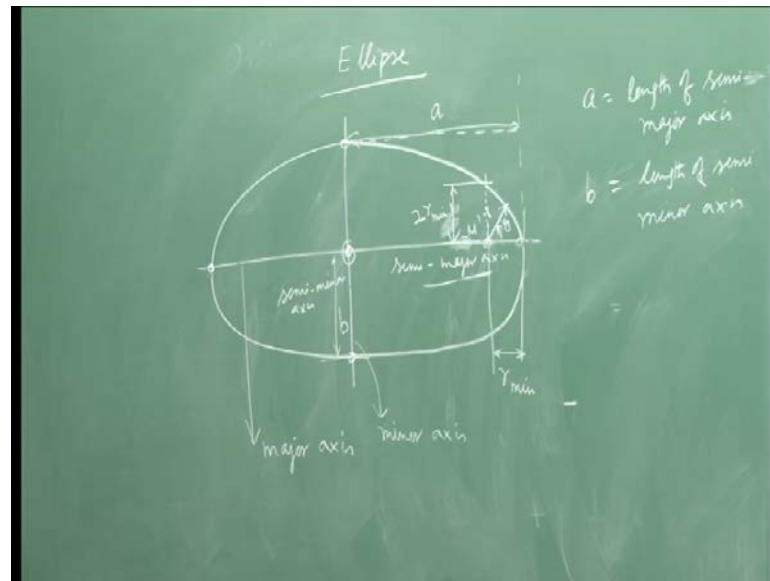 Ellipse
a
a = length of semi-
major axis
b = length of semi
minor axis
2rmin
θ
semi-major axis
semi-minor
axis
b
rmin
major axis
minor axis